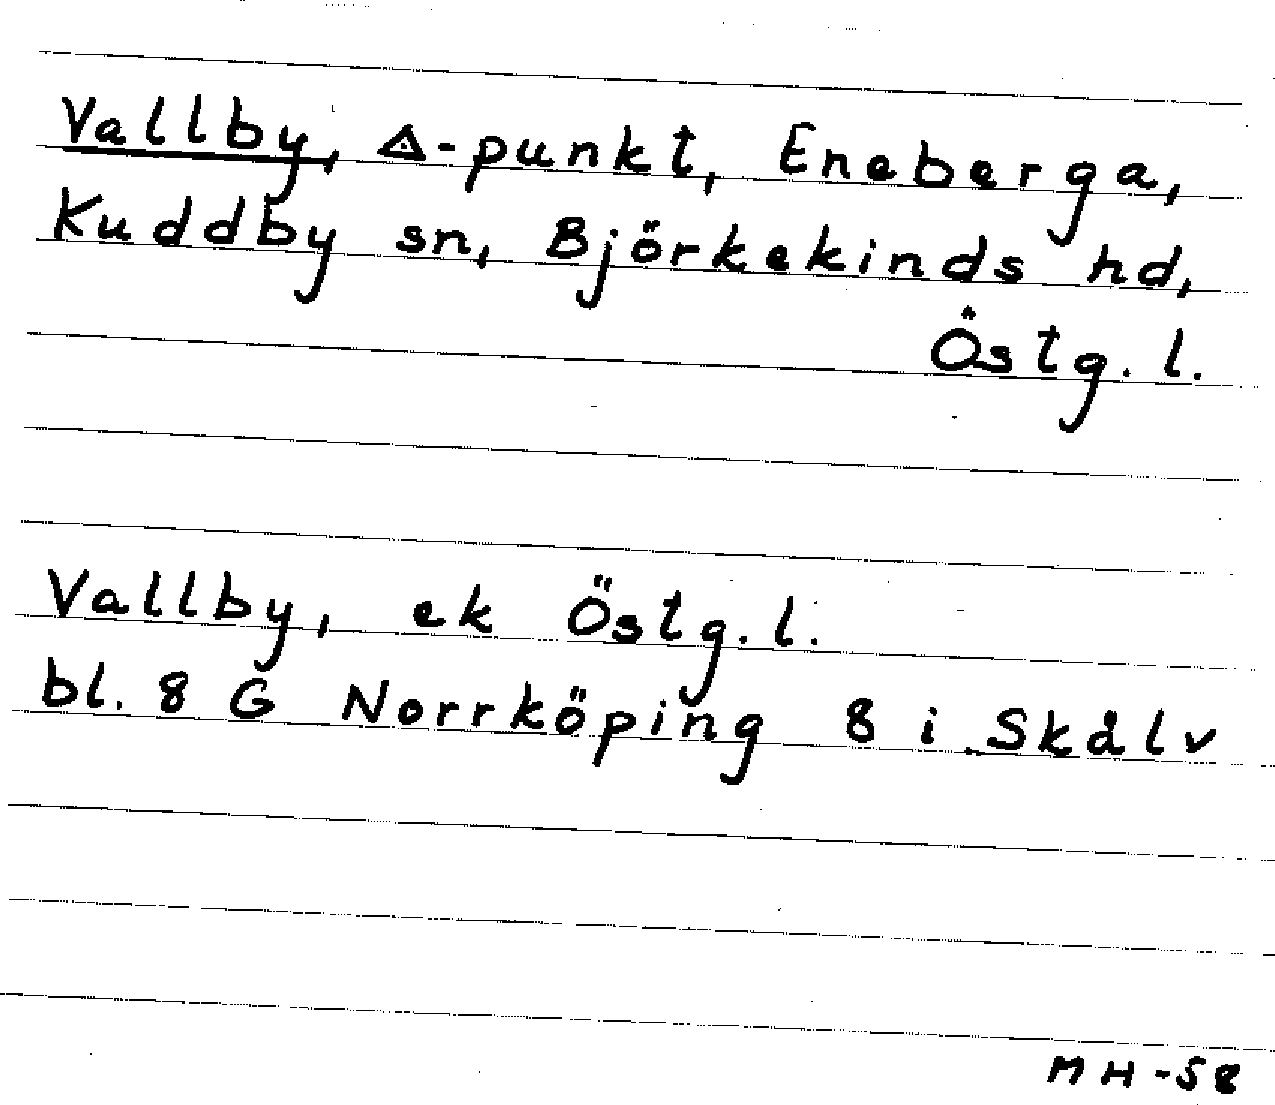 Vallby, Δ-punkt, Eneberga,
Kuddby sn, Björkekinds hd,
Östg. l.
Vallby, ek Östg. l.
bl. 8 G Norrköping 8 i Skålv
MH-58